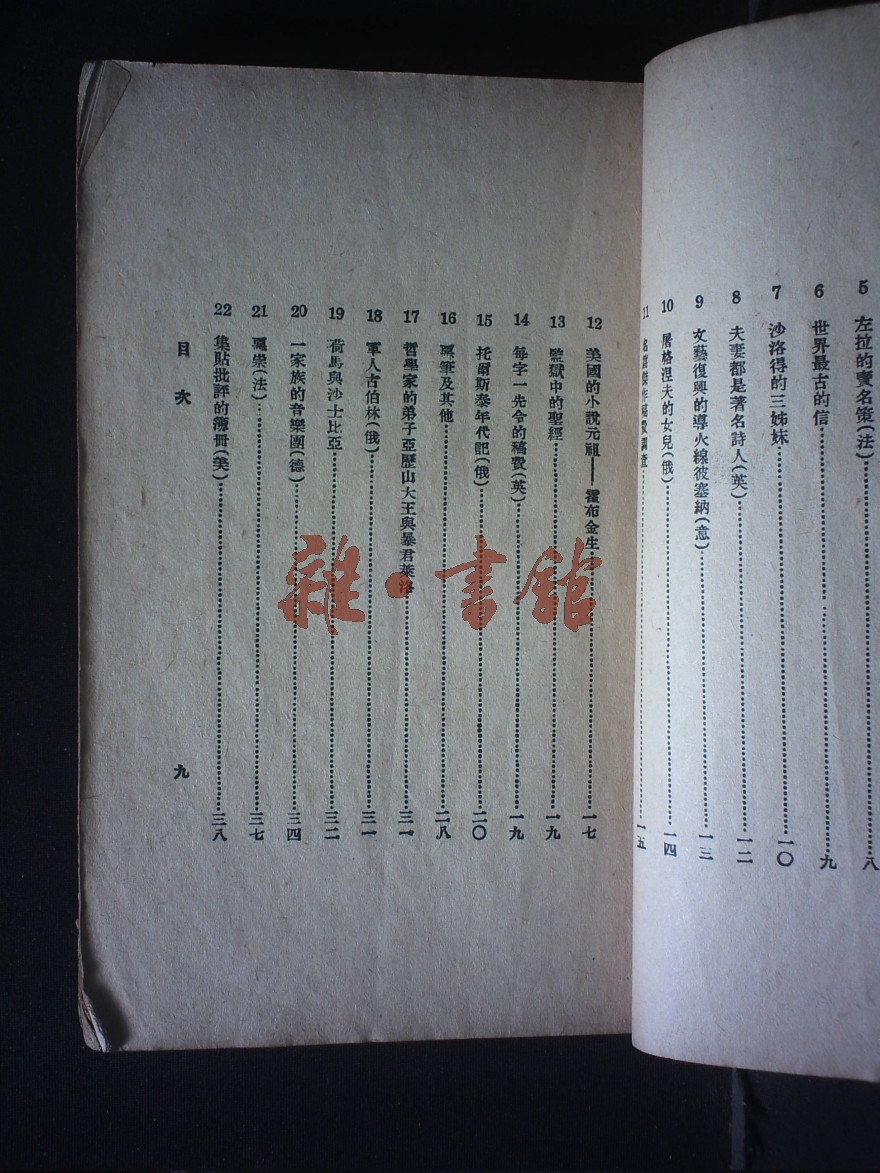 5 左拉的賣名策(法)……八
6 世界最古的信……九
7 沙洛得的三姊妹……一〇
8 夫妻都是著名詩人(英)……一二
9 文藝復興的導火線彼塞納(意)……一三
10 屠格涅夫的女兒(俄)……一四
11 名篇傑作稿費調查……一五
12 美國的小說元祖——霍布金生……一七
13 監獄中的聖經……一九
14 每字一先令的稿費(英)……一九
15 托爾斯泰年代記(俄)……二〇
16 筆及其他……二八
17 哲學家的弟子亞歷山大王與暴君萊洛……三一
18 軍人古伯林(俄)……三一
19 荷馬與沙士比亞……三二
20 一家族的音樂團(德)……三四
21 崇(法)……三七
22 集貼批評的簿冊(美)……三八
目次
九
雜·書館